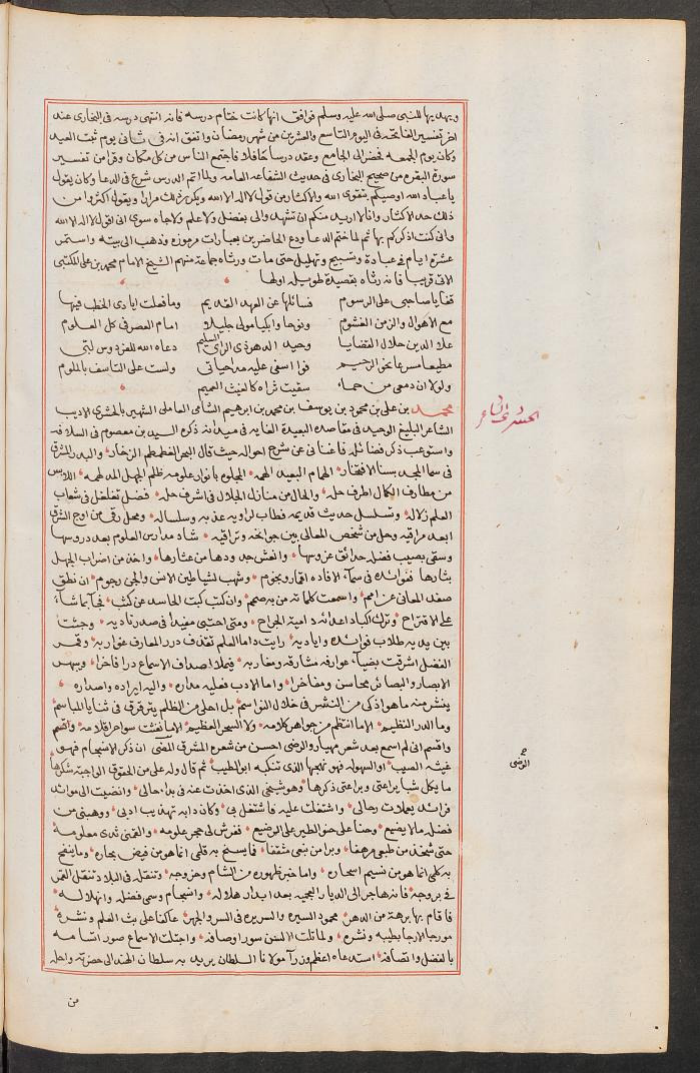 ويهديها للنبي صلى الله عليه وسلم فوافق انها كانت ختام درسه فانه انتهى درسه في البخاري عند
اخر تفسير الفاتحه في اليوم التاسع والعشرين من شهر رمضان واتفق انه في ثاني يوم ثبت العيد
وكان يوم الجمعه فحضر الى الجامع وعقد درسا حافلا فاجتمع الناس من كل مكان وقرا من تفسير
سورة البقره من صحيح البخاري في حديث الشفاعه العامه ولما اتم الدرس شرع في الدعا وكان يقول
يا عباد الله اوصيكم بتقوى الله والاكثار من قول لا اله الا الله ويكرر ذلك مرارا ويقول اكثروا من
ذلك حد الاكثار وانا لا اريد منكم ان تشهدوا لي بفضل ولا علم ولا جاه سوى اني اقول لا اله الا الله
واني كنت اذكركم بها ثم لما ختم الدعا ودع الحاضرين بعبارات مرموزه وذهب الى بيته واستمر
عشرة ايام في عبادة وتسبيح وتهليل حتى مات ورثاه جماعة منهم الشيخ الامام محمد بن علي المكتبي
الاتي قريبا فانه رثاه بقصيدة طويله اولها
قفا يا صاحبي على الرسوم فسائلها عن العهد القديم وما فعلت ايادي الخطب فيها
مع الاهوال والزمن الغشوم ونوحا وابكيا مولى جليلا امام العصر في كل العلوم
علا الدين حلال القضايا وحيد الدهر ذي الراي السليم دعاه الله للفردوس لبى
مطيعا مسرعا نحو الرحيم فوا اسفي عليه مدا حياتي ولست على التاسف بالملوم
ولولا ان دمعي من حماه سقيت ثراه كالغيث العميم
محمد بن علي بن محمود بن يوسف بن محمد بن ابرهيم الشامي العاملي الشهير بالحشري الاديب
الشاعر البليغ الوحيد في مقاصده البعيدة الغايه في ميدانه ذكره السيد بن معصوم في السلافه
واستوعب ذكر فضائله فاغناني عن شرح احواله حيث قال البحر الغطمطم الزخار والبدر المشرق
في سما المجد بسنا الافتخار الهمام البعيد الهمه المجلوه بانوار علومه ظلم الجهل المدلهمه اللابس
من مطارف الكمال اظرف حله والحال من منازل الجلال في اشرف حله فضل تغلغل في شعاب
العلم زلاله وتسلسل حديث قديمه فطاب لراويه عذبه وسلساله ومحل رقى من اوج الشرف
ابعد مراقيه وحل من شخص المعالي بين جوانحه وتراقيه شاد مدارس العلوم بعد دروسها
وسقى بصيب فضله حدائق غروسها وانعش جدودها من عثارها واخذ من احزاب الجهل
بثارها ففوائده في سماء الافاده اقمار ونجوم وشهب لشياطين الانس والجن رجوم ان نطق
صفد المعاني عن امم واسمعت كلماته من به صمم وان كتب كبت الحاسد عن كثب فجا بما شاء
على الاقتراح وترك اكباد اعدائه دامية الجراح ومتى احتبى مفيدا في صدر ناديه وجثت
بين يديه طلاب فوائده واياديه رايت داما العلم تقذف درر المعارف غواربه وقمر
الفضل اشرقت بضياء عوارفه مشارقه ومغاربه فيملا اصداف الاسماع درا فاخرا ويبهر
الابصار والبصائر محاسن ومفاخرا واما الادب فعليه مداره واليه ايراده واصداره
ينشر منه ما هو اذكى من النشر في خلال النواسم بل احلى من الظلم يترقرق في ثنايا المباسم
وما الدر النظيم الا ما انتظم من جواهر كلامه ولا السحر العظيم الا ما نفثت سواحر اقلامه واقسم
واقسم اني لم اسمع بعد شعر مهيار والرضي احسن من شعره المشرق المضي ان ذكر الانسجام فهو
غيثه الصيب او السهولة فهو نهجها الذي تنكبه ابو الطيب ثم قال وله علي من الحقوق الواجبة شكرها
ما يكل شبا يراعتي وبراعتي ذكرها وهو شيخي الذي اخذت عنه في بدا حالي وانضيت الى موائد
فوائده يعملات رحالي واشتغلت عليه فاشتغل بي وكان دابه تهذيب ادبي ووهبني من
فضله ما لا يضيع وحنا علي حنو الظير على الرضيع ففرش لي حجر علومه والقمني ثدي معلومه
حتى شحذ من طبعي مرهفا وبرا من نبعي مثقفا فما يسفح به قلمي انما هو من فيض بحاره وما ينفح
به كلمي انما هو من نسيم اسحاره واما خبر ظهوره من الشام وخروجه وتنقله في البلاد تنقل القمر
في بروجه فانه هاجر الى الديار العجميه بعد ابدار هلاله وانسجام وسمي فضله وانهلاله
فاقام بها برهة من الدهر محمود السيره والسريره في السر والجهر عاكفا على بث العلم ونشره
مورجا الارجا بطيبه ونشره ولما تلت الالسن سور اوصافه واجتلت الاسماع صور اتسامه
بالفضل واتصافه استدعاه اعظم وزراء مولانا السلطان يريد به سلطان الهند الى حضرته واحله
من
الحشري الشاعر
الرضي